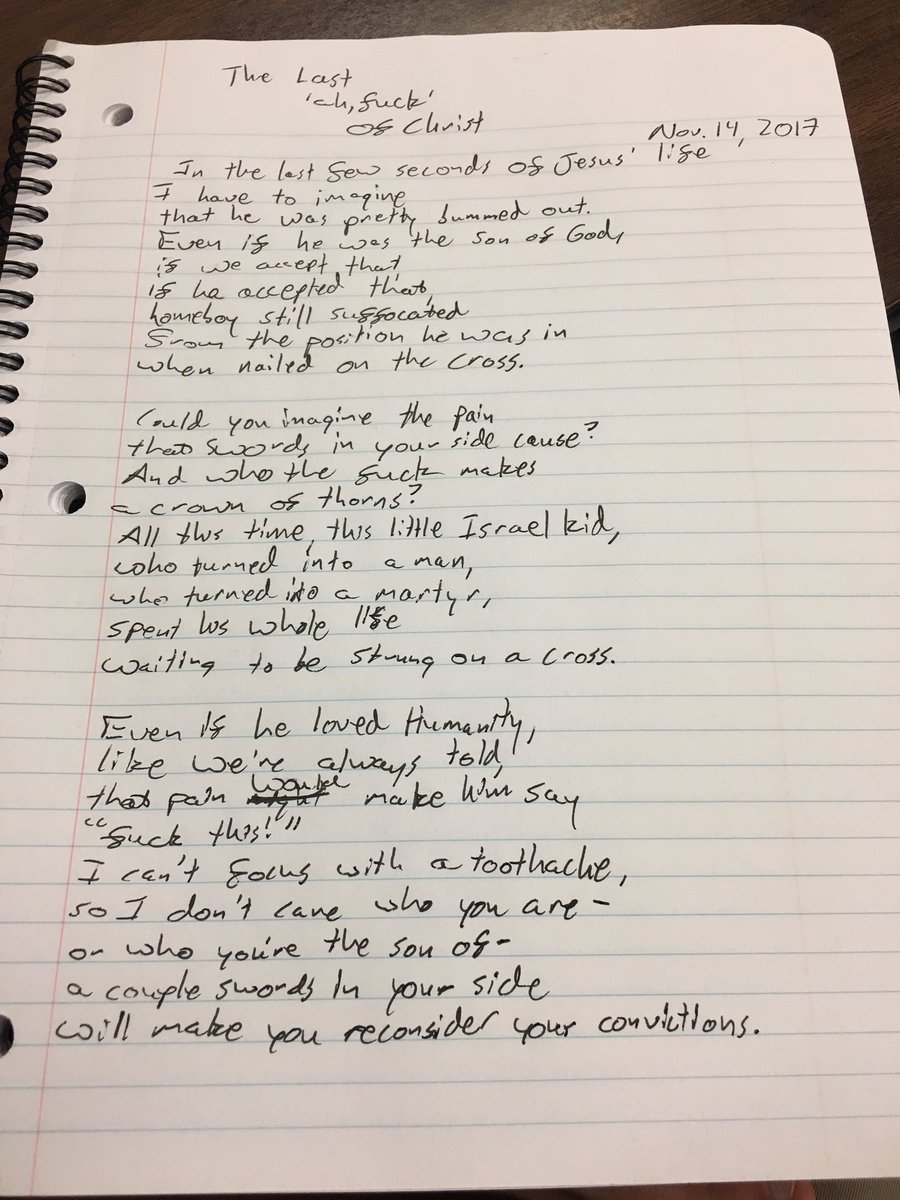 The Last
'ah, fuck'
of Christ
Nov. 14, 2017
In the last few seconds of Jesus' life
I have to imagine
that he was pretty bummed out.
Even if he was the son of God,
if we accept that,
if he accepted that,
homeboy still suffocated
from the position he was in
when nailed on the cross.
Could you imagine the pain
that swords in your side cause?
And who the fuck makes
a crown of thorns?
All this time, this little Israel kid,
who turned into a man,
who turned into a martyr,
spent his whole life
waiting to be strung on a cross.
Even if he loved Humanity,
like we're always told,
that pain would make him say
"fuck this!"
I can't focus with a toothache,
so I don't care who you are-
or who you're the son of-
a couple swords in your side
will make you reconsider your convictions.